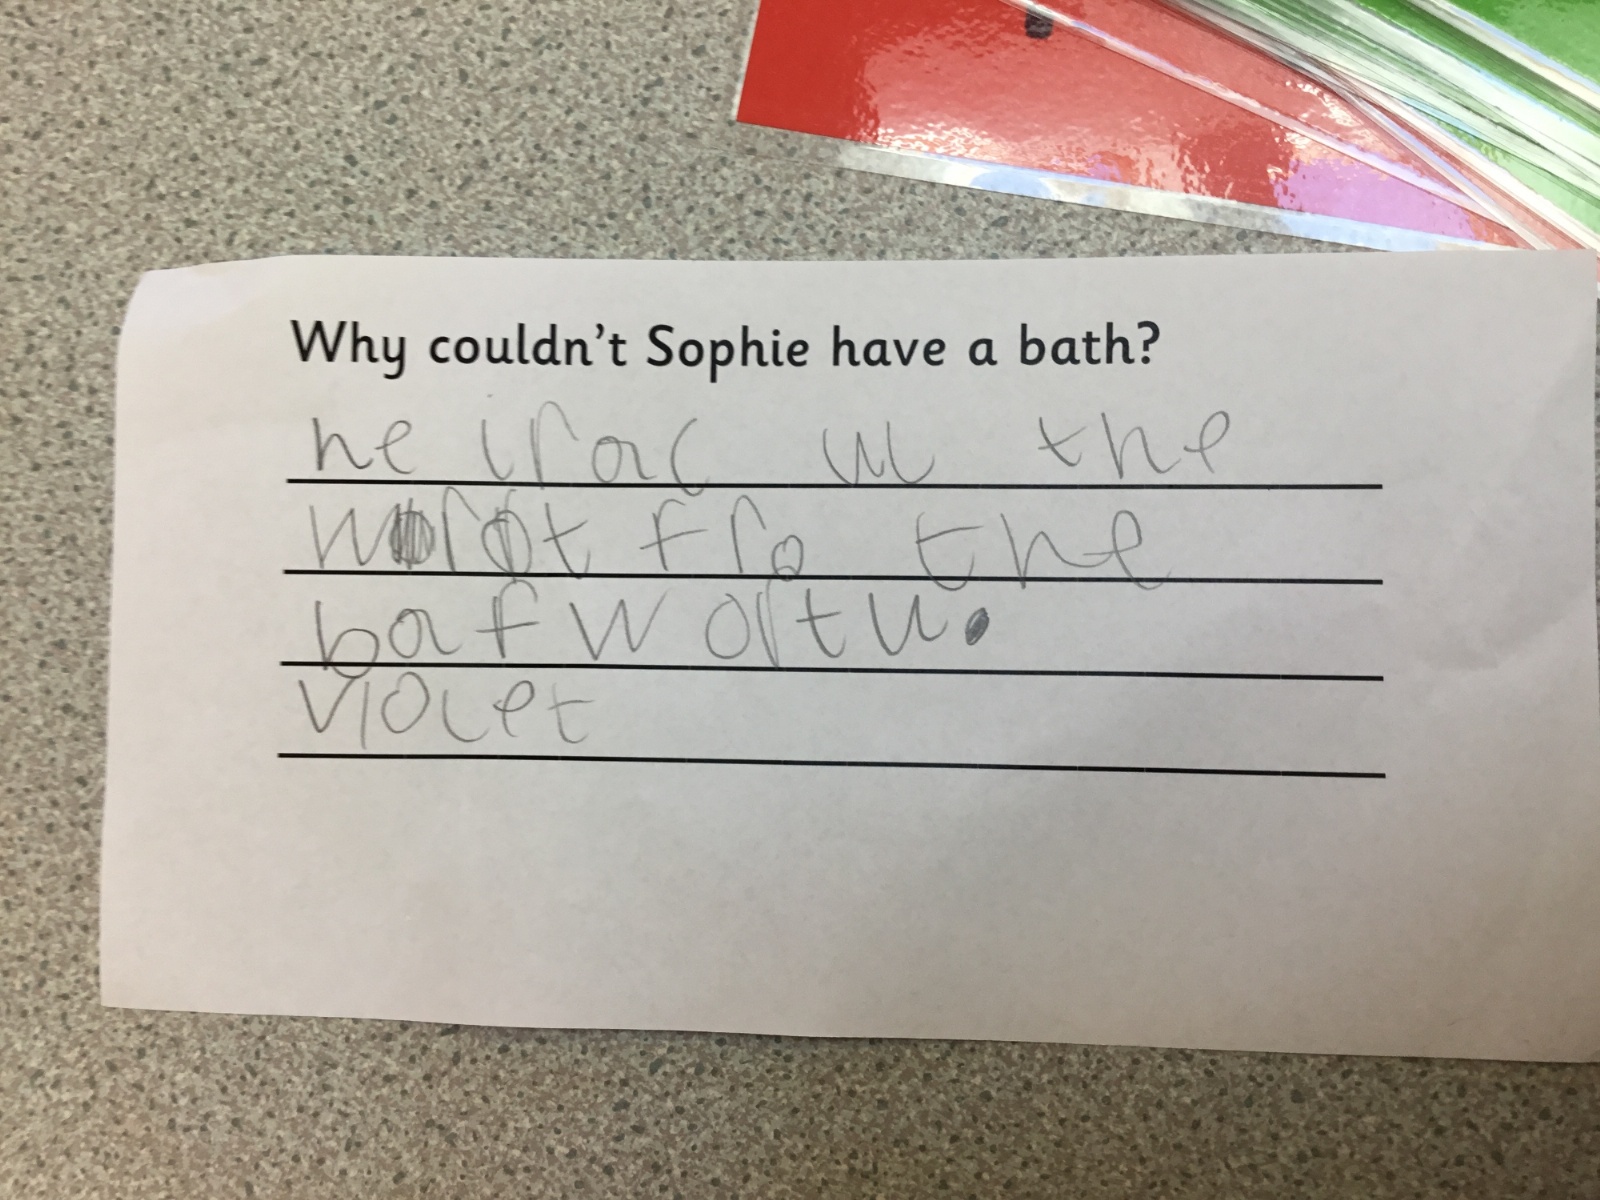 Why couldn't Sophie have a bath?
he irac ul the
wort fro the
baf wortu.
violet